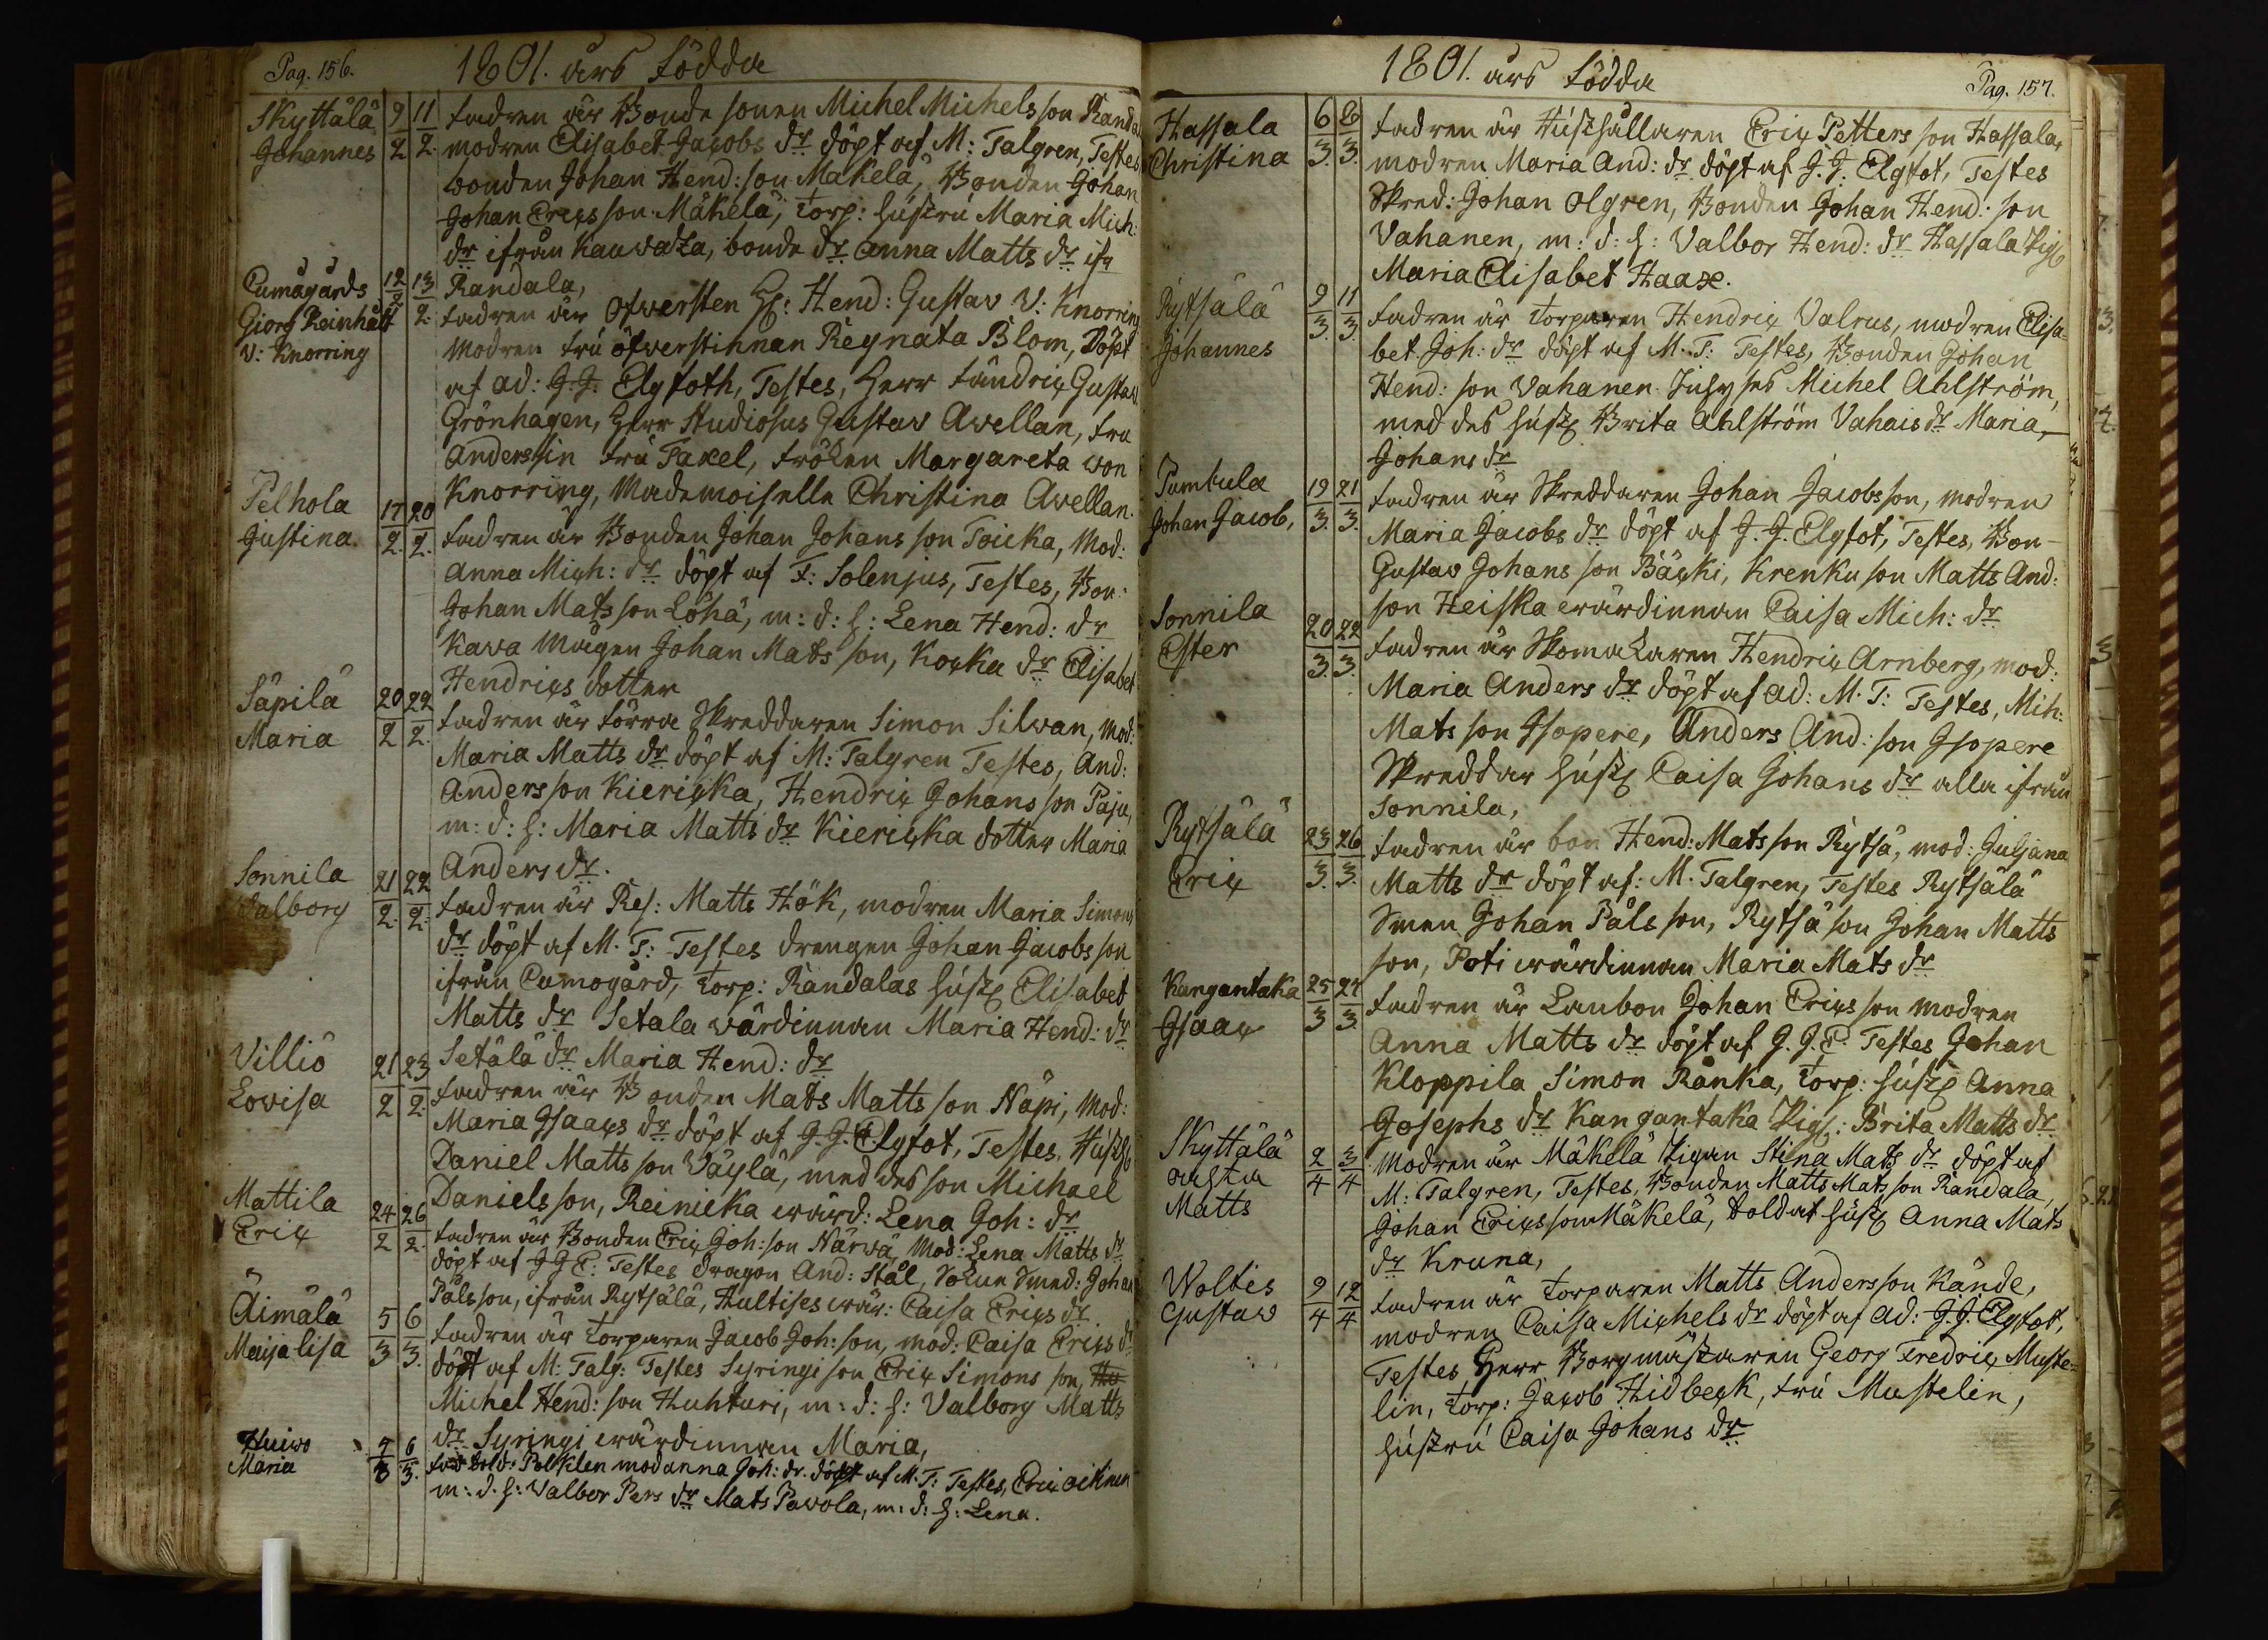 Pag. 156.
1801. års födda
Skyttälä 9/2 11/2 fadren är Bonde sonen Michel Michels son Randala
Johannes modren Elisabet Jacobs dr döpt af M: Talgren, Testes
bonden Johan Hend: son Mäkelä, Bonden Johan
Johan Erics son Mäkelä, Torp: hustru Maria Mich:
dr ifrån Kauvatza, bonde dr Anna Matts dr ifr
Randala,
Cumågårds 12/2 13/2 fadren är öfwersten H: Hend: Gustav V: Knorring
Giorg Reinhålt
V: Knorring modren fru öfwerstinnan Regnata Blom, Döpt
af ad: J. J. Elgfoth, Testes, Herr fändric Gustav
Grönhagen, Herr Studiosus Gustav Avellan, fru
Anderssin fru Taxel, fröken Margareta won
Knorring, Mademoiselle Christina Avellan.
Pelhola 17/2 20/2 fadren är Bonden Johan Johans son Toicka, Mod:
Justina. Anna Mich: dr döpt af F: Solenjus, Testes, Bon:
Johan Mats son Löhä, m: d: h: Lena Hend: dr
Kava mågen Johan Mats son, Kocka dr Elisabet
Hendrics dotter
Säpilä 20/2 22/2 fadren är förra Skreddaren Simon Silvan, Mod:
Maria Maria Matts dr döpt af M: Talgren Testes, And:
Anders son Kiericka, Hendric Johans son Paju,
m: d: h: Maria Matts dr Kiericka dotter Maria
Anders dr.
Sonnila 21/2 22/2 fadren är Res: Matts Hök, modren Maria Simons
Valborg dr döpt af M. T: Testes drengen Johan Jacobs son
ifrån Cumogård, Torp: Randalas hust Elisabet
Matts dr Setala wärdinnan Maria Hend: dr
Setälä dr Maria Hend: dr
Villiö 21/2 23/2 fadren är Bonden Mats Matts son Näpi, Mod:
Lovisa Maria Isaacs dr döpt af J. J. Elgfot, Testes, Hush
Daniel Matts son Väylä, med des son Michael
Daniels son, Reinicka wärd: Lena Joh: dr
Mattila 24/2 26/2 fadren är Bonden Eric Joh: son Närwä, Mod: Lena Matts dr
Eric döpt af J J E: Testes dragon And: Stål, Sokne Smed: Johan
Påls son, ifrån Rytsälä, Hultises wär: Caisa Erics dr
Äimälä 5/3 6/3 fadren är Torparen Jacob Joh: son, mod: Caisa Erics dr
Maija lisa döpt af M: Talg: Testes Syringi son Eric Simons son,
Michel Hend: son Huhturi, m: d: h: Valborg Matts
dr Syringi wärdinnan Maria,
Huiwo 4/3 6/3 fad Sold: Polklen mod Anna Joh: dr. döpt af M. T: Testes, Eric Oikinen
Maria m: d. h: Valbor Pers dr Mats Pavola, m: d: h: Lena.
1801. års födda
Pag. 157.
Hassala 6/3 8/3 fadren är Hushållaren Eric Petters son Hassala,
Christina modren Maria And: dr döpt af J. J. Elgfot, Testes
Skred: Johan Olgren, Bonden Johan Hend: son
Vahanen, m: d: h: Valbor Hend: dr Hassala Pig
Maria Elisabet Haax.
Rytsälä 9/3 11/3 fadren är Torparen Hendric Valrus, modren Elisa-
Johannes bet Joh: dr döpt af M. T: Testes, Bonden Johan
Hend: son Vahanen Inhyses Michel Ahlström,
med des hust Brita Ahlström Vahais dr Maria
Johans dr
Pumbula 19/3 21/3 fadren är Skreddaren Johan Jacobs son, modren
Johan Jacob, Maria Jacobs dr döpt af J. J. Elgfot, Testes, Bon-
Gustav Johans son Bäcki, Krenku son Matts And:
son Heiska wärdinnan Caisa Mich: dr
Sonnila 20/3 22/3 fadren är Skomakaren Hendric Arnberg, mod:
Ester Maria Anders dr döpt af ad: M. T: Testes, Mih:
Mats son Isopere, Anders And: son Isopere
Skreddar hust Caisa Johans dr alla ifrån
Sonnila,
Rytsälä 23/3 26/3 fadren är bon Hend: Mats son Rytsä, mod: Juljana
Eric Matts dr döpt af: M. Talgren, Testes Rytsälä
Smen Johan Påls son, Rytsä son Johan Matts
son, Poti wärdinnan Maria Mats dr
Kangantaka 25/3 27/3 fadren är Lanbon Johan Erics son modren
Isaac Anna Matts dr döpt af J. J. E. Testes Johan
Kloppila Simon Ränka, Torp: hust Anna
Josephs dr Kangantaka Pig: Brita Matts dr
Skyttälä 2/4 3/4 modren är Mäkelä Pigan Stina Mats dr döpt af
oäkta M: Talgren, Testes, Bonden Matts Mats son Randala,
Matts Johan Erics son Mäkelä, Soldat hust Anna Mats
dr Kruna,
Woltis 9/4 12/4 fadren är Torparen Matts Anders son Kände,
Gustav modren Caisa Michels dr döpt af ad: J. J. Elgfot,
Testes Herr Borgmästaren Georg Fredric Muste-
lin, Torp: Jacob Hidbeck, fru Mustelin,
hustru Caisa Johans dr